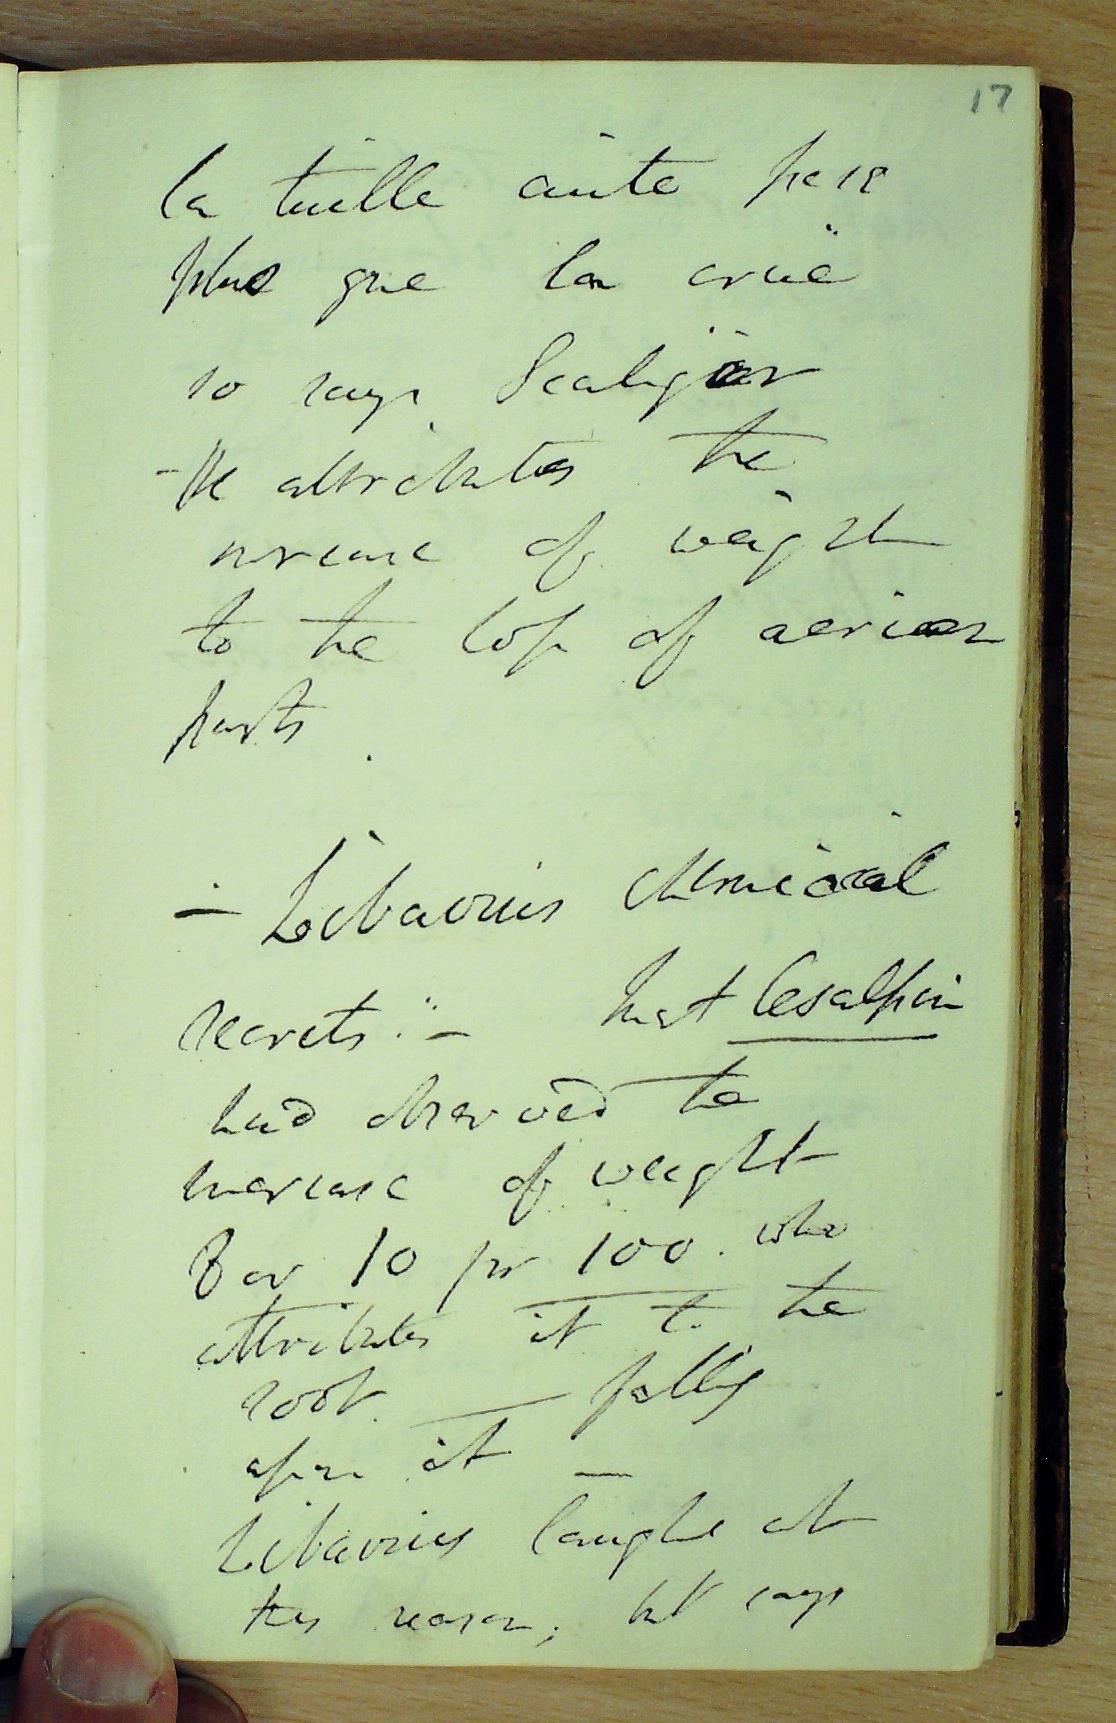 17
la tuille cuite pese
plus que la crüe
so says Scaliger
- He attributes the
increase of weight
to the loss of aerian
parts.
- Libavius chemical
secrets :- that Cesalpin
had observed the
increase of weight
8 or 10 pr 100. who
attributes it to the
soot. - falling
upon it -
Libavius laughs at
this reason; but says